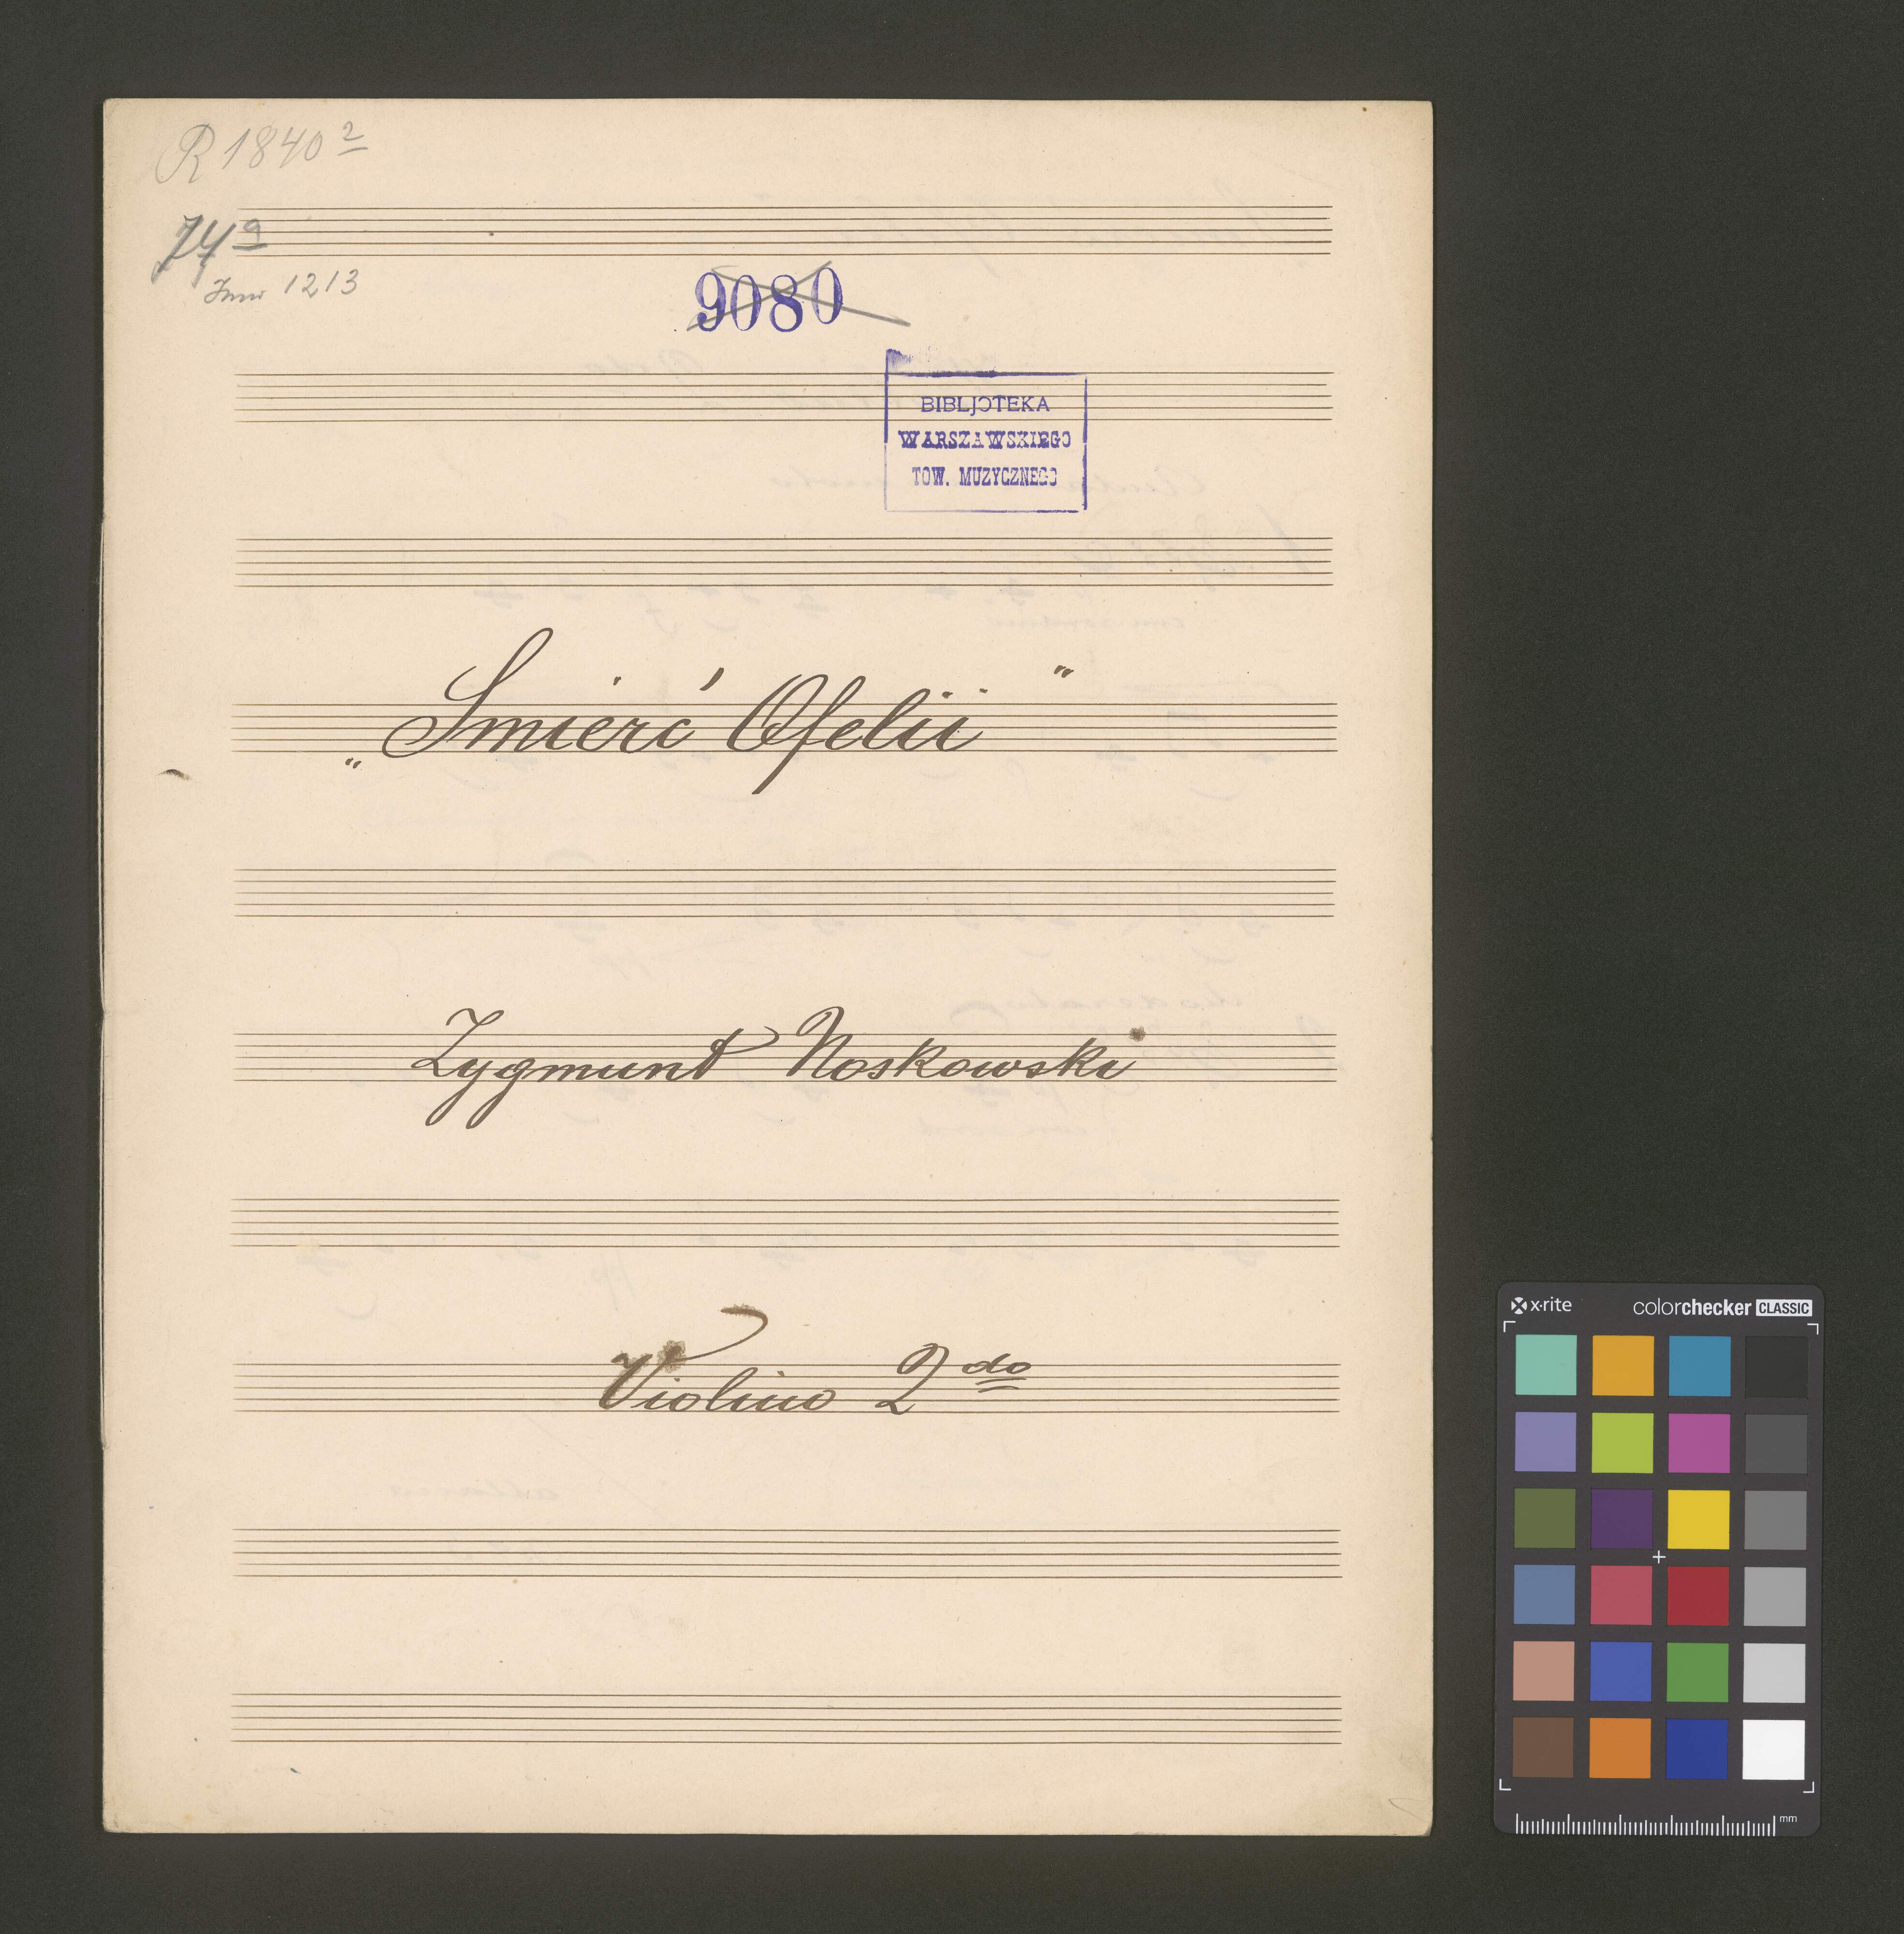 R 1840 2
74 a
Inw 1213
9080
BIBLJOTEKA
WARSZAWSKIEGO
TOW. MUZYCZNEGO
„Smierć Ofelii"
Zygmunt Noskowski
Violino 2do
x·rite colorchecker CLASSIC
mm